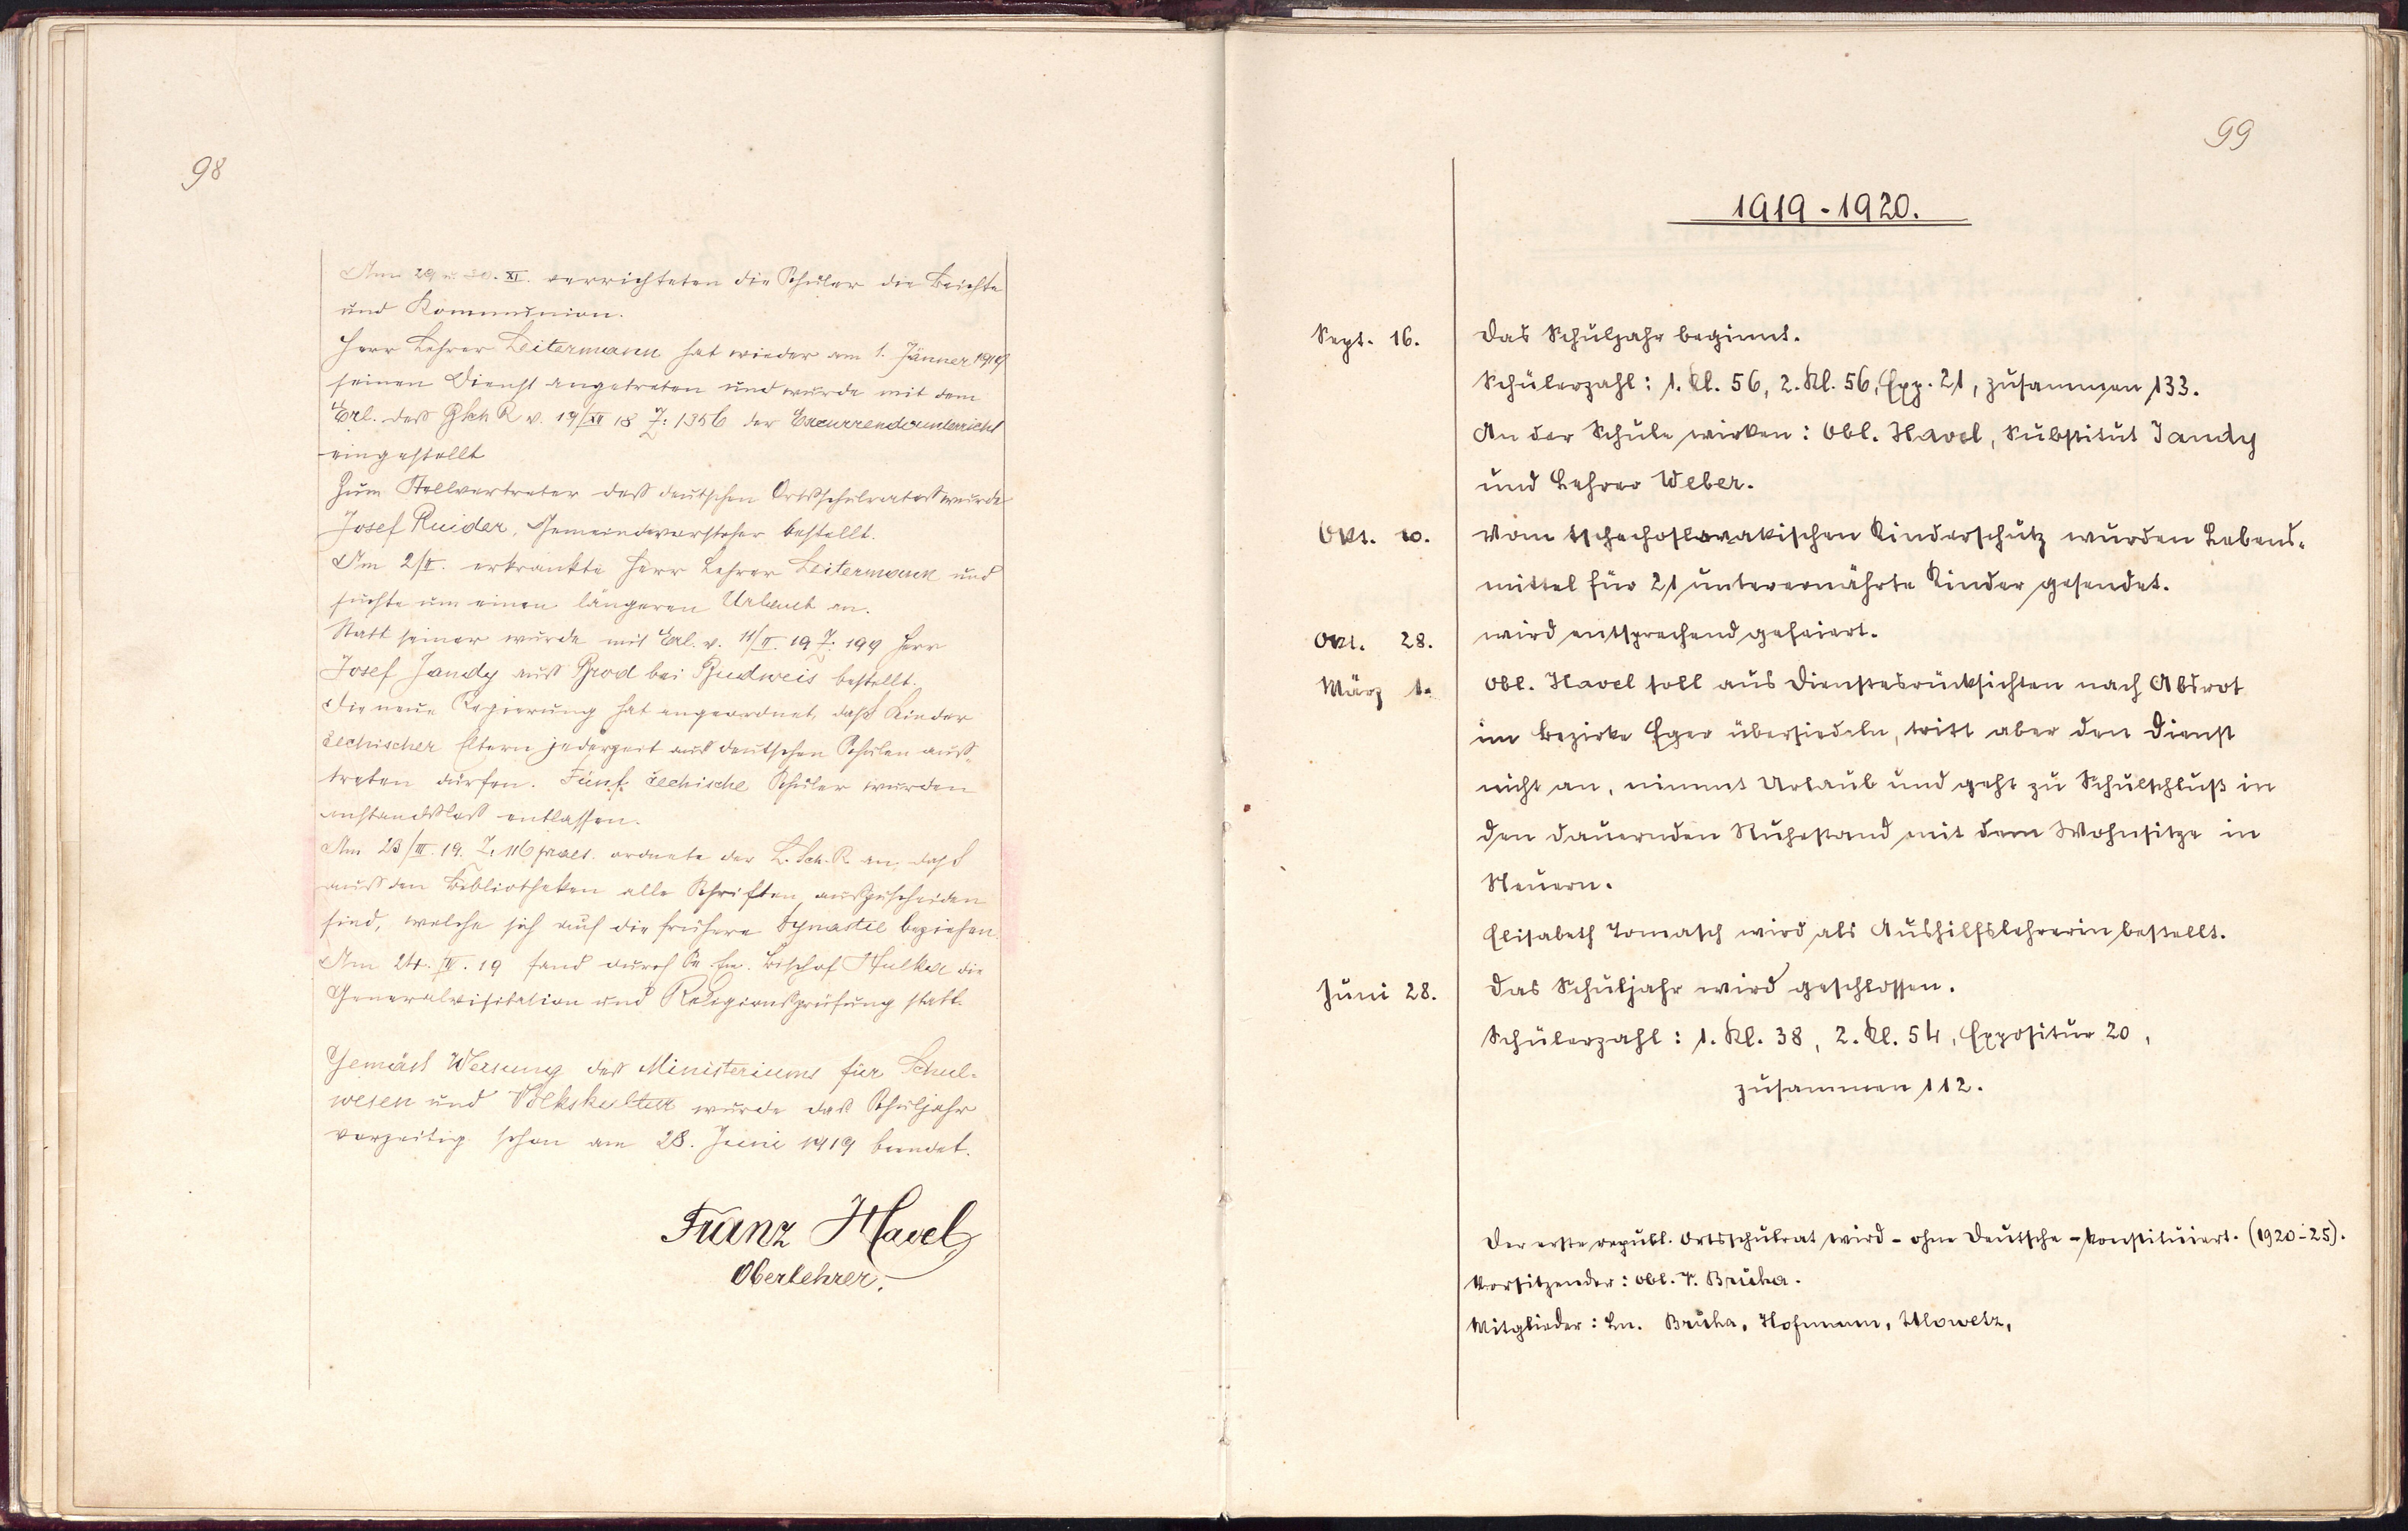 98
Am 29 u. 30. XI. verrichteten die Schüler die Beichte
und Kommunion.
Herr Lehrer Leitermann hat wieder am 1. Jänner 1919
seinen Dienst angetreten und wurde mit dem
Erl. des B Sch R v. 19/XII 18 Z: 1356 der Excurrendounterricht
eingestellt
Zum Stellvertreter des deutschen Ortsschulrates wurde
Josef Ruider, Gemeindevorsteher bestellt.
Am 2/II. erkrankte Herr Lehrer Leitermann und
suchte um einen längeren Urlaub an.
Statt seiner wurde mit Erl. v. 11/II. 19 Z. 199 Herr
Josef Jandy aus Brod bei Budweis bestellt.
Die neue Regierung hat angeordnet, daß Kinder
čechischer Eltern jederzeit aus deutschen Schulen aus-
treten dürfen. Fünf čechische Schüler wurden
anstandslos entlassen.
Am 23/III. 19. Z. 116 praes. ordnete der L. Sch. R. an, daß
aus den Bibliotheken alle Schriften auszuscheiden
sind, welche sich auf die frühere Dynastie beziehen.
Am 24. IV. 19 fand durch Se. Em. Bischof Hulka die
Generalvisitation und Religionsprüfung statt.
Gemäß Weisung des Ministeriums für Schul-
wesen und Volkskultur wurde das Schuljahr
vorzeitig schon am 28. Juni 1919 beendet.
Franz Havel
Oberlehrer.
99
1919-1920.
Sept. 16. Das Schuljahr beginnt.
Schülerzahl: 1. Kl. 56, 2. Kl. 56, Exp. 21, zusammen 133.
An der Schule wirken: Obl. Havel, Substitut Jandy
und Lehrer Weber.
Okt. 10. Vom tschechoslovakischen Kinderschutz wurden Lebens-
mittel für 21 unterernährte Kinder gesendet.
Okt. 28. wird entsprechend gefeiert.
März 1. Obl. Havel soll aus Dienstesrücksichten nach Absrot
im Bezirke Eger übersiedeln, tritt aber den Dienst
nicht an, nimmt Urlaub und geht zu Schulschluß in
den dauernden Ruhestand mit dem Wohnsitze in
Neuern.
Elisabeth Tomasch wird als Aushilfslehrerin bestellt.
Juni 28. Das Schuljahr wird geschlossen.
Schülerzahl: 1. Kl. 38, 2. Kl. 54, Expositur 20,
zusammen 112.
Der erste republ. Ortsschulrat wird - ohne Deutsche - konstituiert. (1920-25).
Vorsitzender: Obl. T. Bruha.
Mitglieder: Ln. Bruha, Hofmann,